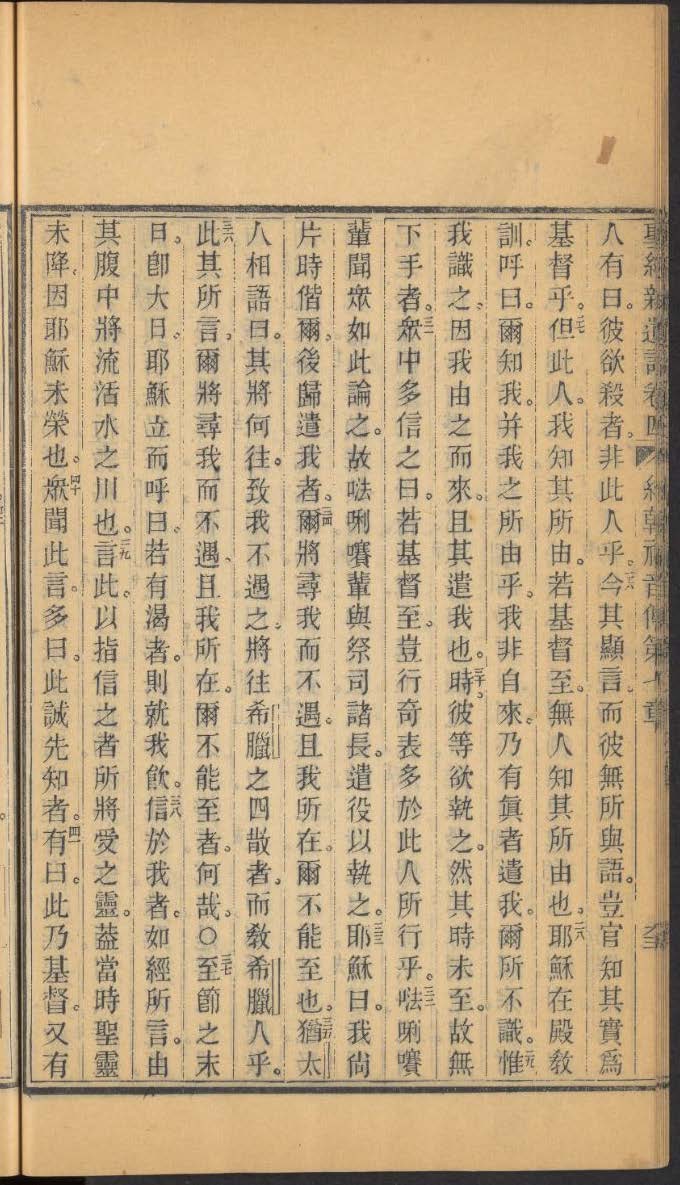 聖經新遺詔卷四 約翰福音傳第七章 至
人有曰。彼欲殺者。非此人乎。二六今其顯言。而彼無所與語。豈官知其實爲
基督乎。二七但此人。我知其所由。若基督至。無人知其所由也。二八耶穌在殿敎
訓。呼曰。爾知我。并我之所由乎。我非自來。乃有眞者遣我。爾所不識。二九惟
我識之。因我由之而來。且其遣我也。三十時。彼等欲執之。然其時未至。故無
下手者。三一衆中多信之。曰。若基督至。豈行奇表多於此人所行乎。三二㕸唎㘔
輩聞衆如此論之。故㕸唎㘔輩與祭司諸長。遣役以執之。三三耶穌曰。我尙
片時偕爾。後歸遣我者。三四爾將尋我而不遇。且我所在。爾不能至也。三五猶太
人相語曰。其將何往。致我不遇之。將往希臘之四散者。而敎希臘人乎。
三六此其所言。爾將尋我而不遇。且我所在。爾不能至者。何哉。○三七至節之末
日。卽大日。耶穌立而呼曰。若有渴者。則就我飮。三八信於我者。如經所言。由
其腹中將流活水之川也。三九言此。以指信之者所將受之靈。葢當時聖靈
未降。因耶穌未榮也。四十衆聞此言。多曰。此誠先知者。四一有曰。此乃基督。又有